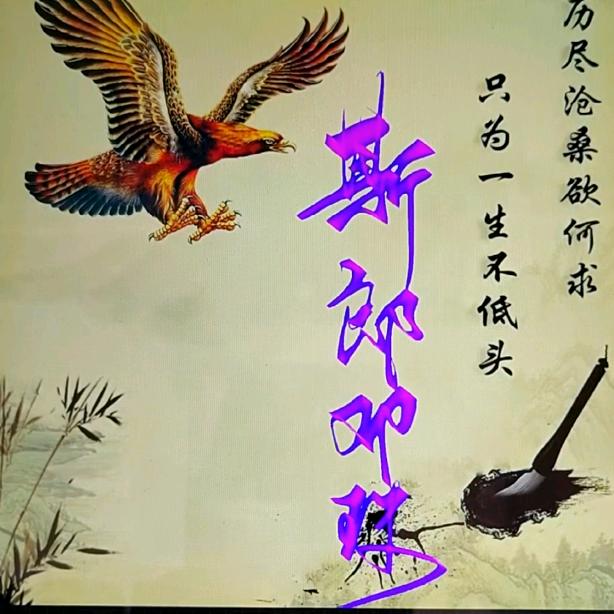 历尽沧桑欲何求
只为一生不低头
斯郎邓珠